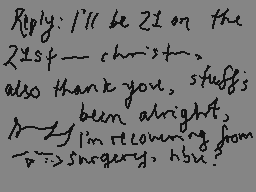 Reply: I'll be 21 on the
21st — christm.
also thank you, stuffs
been alright,
I'm recovering from
surgery, hbu?